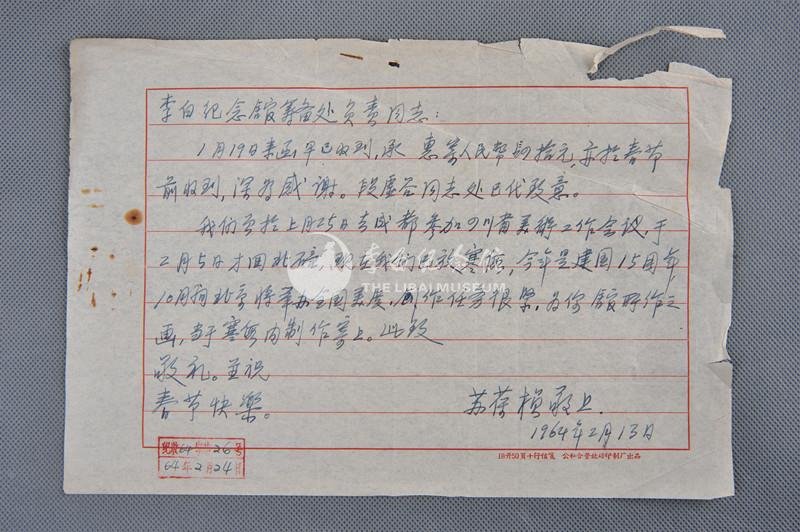 李白纪念馆筹备处负责同志：
1月19日来函早已收到，承 惠寄人民币 拾元，亦于春节
前收到，深为感谢。段虚谷同志处已代致意。
我们曾于上月25日去成都参加四川省美协工作会议，于
2月5日才回北碚，现在我们已放寒假，今年是建国15周年
10月间北京将举办全国美展，创作任务很紧，为你馆所作之
画，当于寒假内制作寄上。此致
敬礼。并祝
春节快乐。
苏葆桢敬上.
1964年2月13日
64 26号
64年2月24日
18开50页十行信笺 公私合营 印制厂出品
李白纪念馆
THE LIBAI MUSEUM